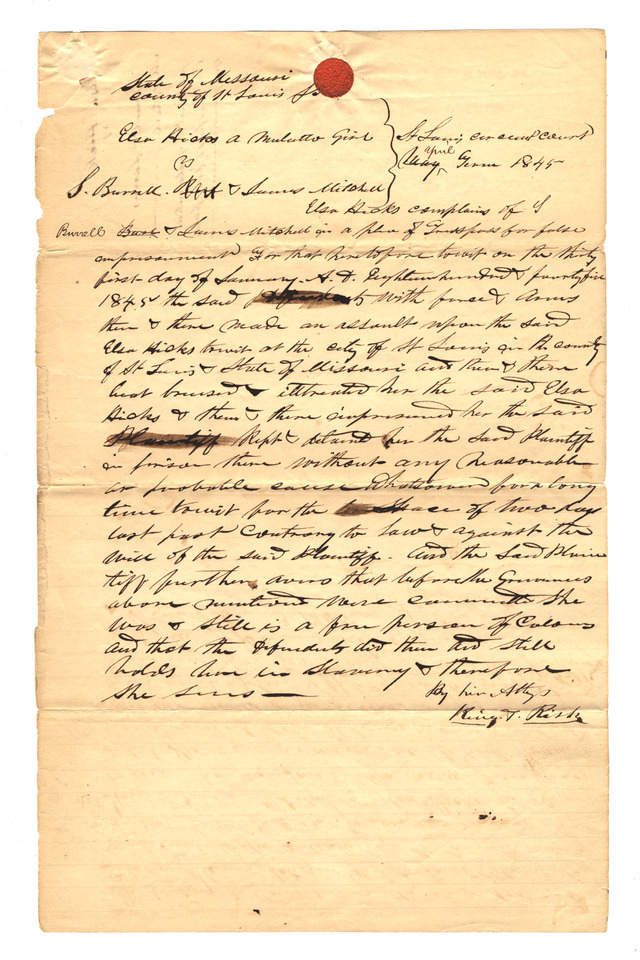 State of Missouri
County of St Louis Ss
Elsa Hicks a Mulatto Girl
vs
S. Burrell & James Mitchell
St Louis circuit court
April
May Term 1845
Elsa Hicks complains of S
Burrell & James Mitchell in a plea of Tresspass for false
imprisonment For that heretofore towit on the thirty
first day of January A. D. Eighteen hundred & fourty five
1845 the said defendants With force & Arms
then & there made an assault upon the said
Elsa Hicks towit at the city of St Louis in the county
of St Louis & State of Missouri and then & there
beat bruised & illtreated her the said Elsa
Hicks & then & there imprisoned her the said
Plaintiff Kept & detaind her the said Plaintiff
in prison there without any reasonable
or probable cause whatsoever for a long
time towit for the space of two days
last past Contrary to law & against the
will of the said Plaintiff. And the said Plain
tiff further avers that before the Grievances
above mentiond were committed She
was & still is a free person of Colour
and that the Defendants did then and still
holds her in Slavery & therefore
She sues —
By her Attys
King & Risk